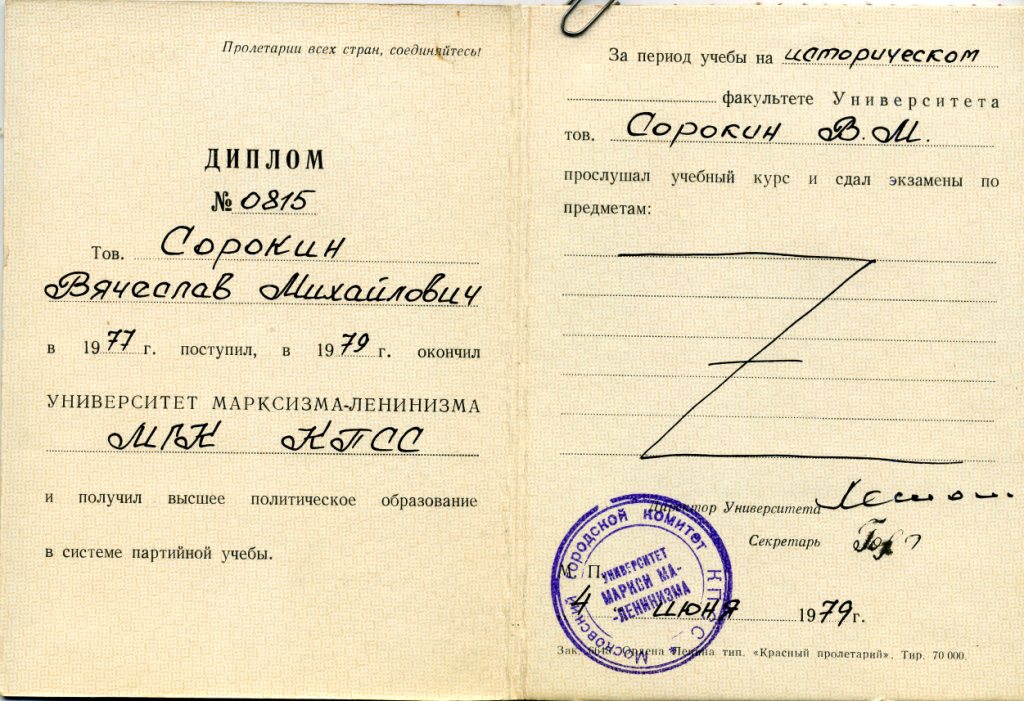 Пролетарии всех стран, соединяйтесь!
ДИПЛОМ
№ 0815
Тов. Сорокин
Вячеслав Михайлович
в 1977 г. поступил, в 1979 г. окончил
УНИВЕРСИТЕТ МАРКСИЗМА-ЛЕНИНИЗМА
МГК КПСС
и получил высшее политическое образование
в системе партийной учебы.
За период учебы на историческом
факультете Университета
тов. Сорокин В. М.
прослушал учебный курс и сдал экзамены по
предметам:
Директор Университета
Секретарь
М. П.
4 июня 1979 г.
Московский городской комитет КПСС
УНИВЕРСИТЕТ
МАРКСИЗМА-
-ЛЕНИНИЗМА
Зак. Ордена Ленина тип. «Красный пролетарий». Тир. 70 000.